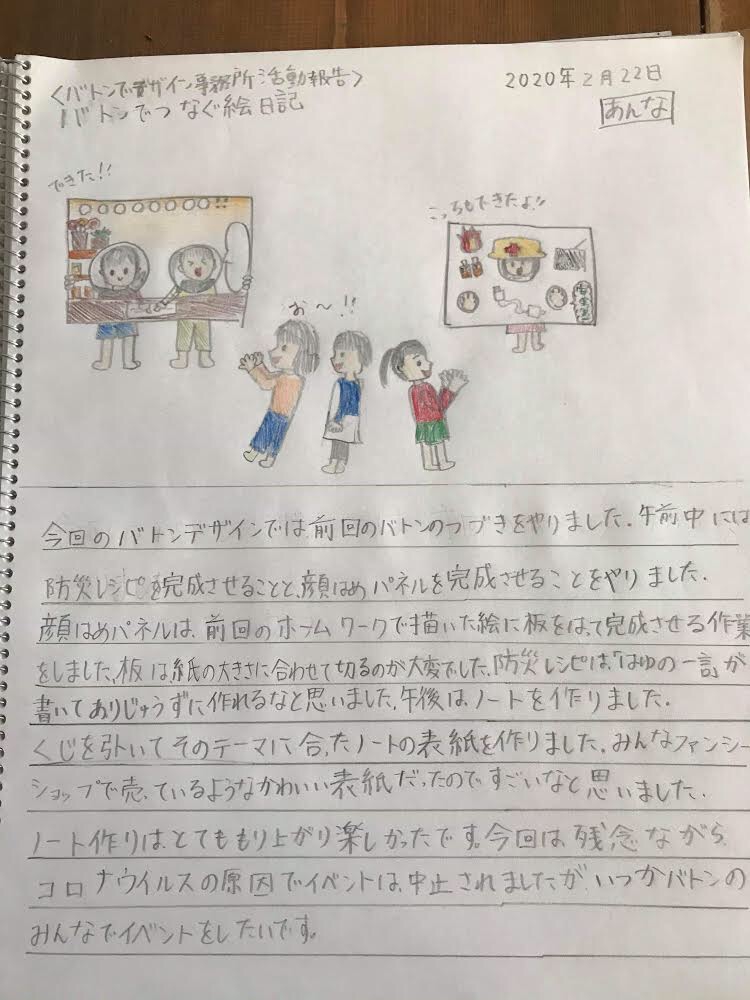 <バトンでデザイン事務所活動報告>
2020年2月22日
バトンでつなぐ絵日記
あんな
できた!!
こっちもできたよ!!
お〜!!
今回のバトンデザインでは前回のバトンのつづきをやりました。午前中には
防災レシピを完成させることと、顔はめパネルを完成させることをやりました。
顔はめパネルは、前回のホームワークで描いた絵に板をはって完成させる作業
をしました。板は紙の大きさに合わせて切るのが大変でした。防災レシピは、「はゆの一言」が
書いてありじょうずに作れるなと思いました。午後はノートを作りました。
くじを引いてそのテーマに合ったノートの表紙を作りました。みんなファンシー
ショップで売っているようなかわいい表紙だったのですごいなと思いました。
ノート作りはとてももり上がり楽しかったです。今回は残念ながら
コロナウイルスの原因でイベントは、中止されましたが、いつかバトンの
みんなでイベントをしたいです。